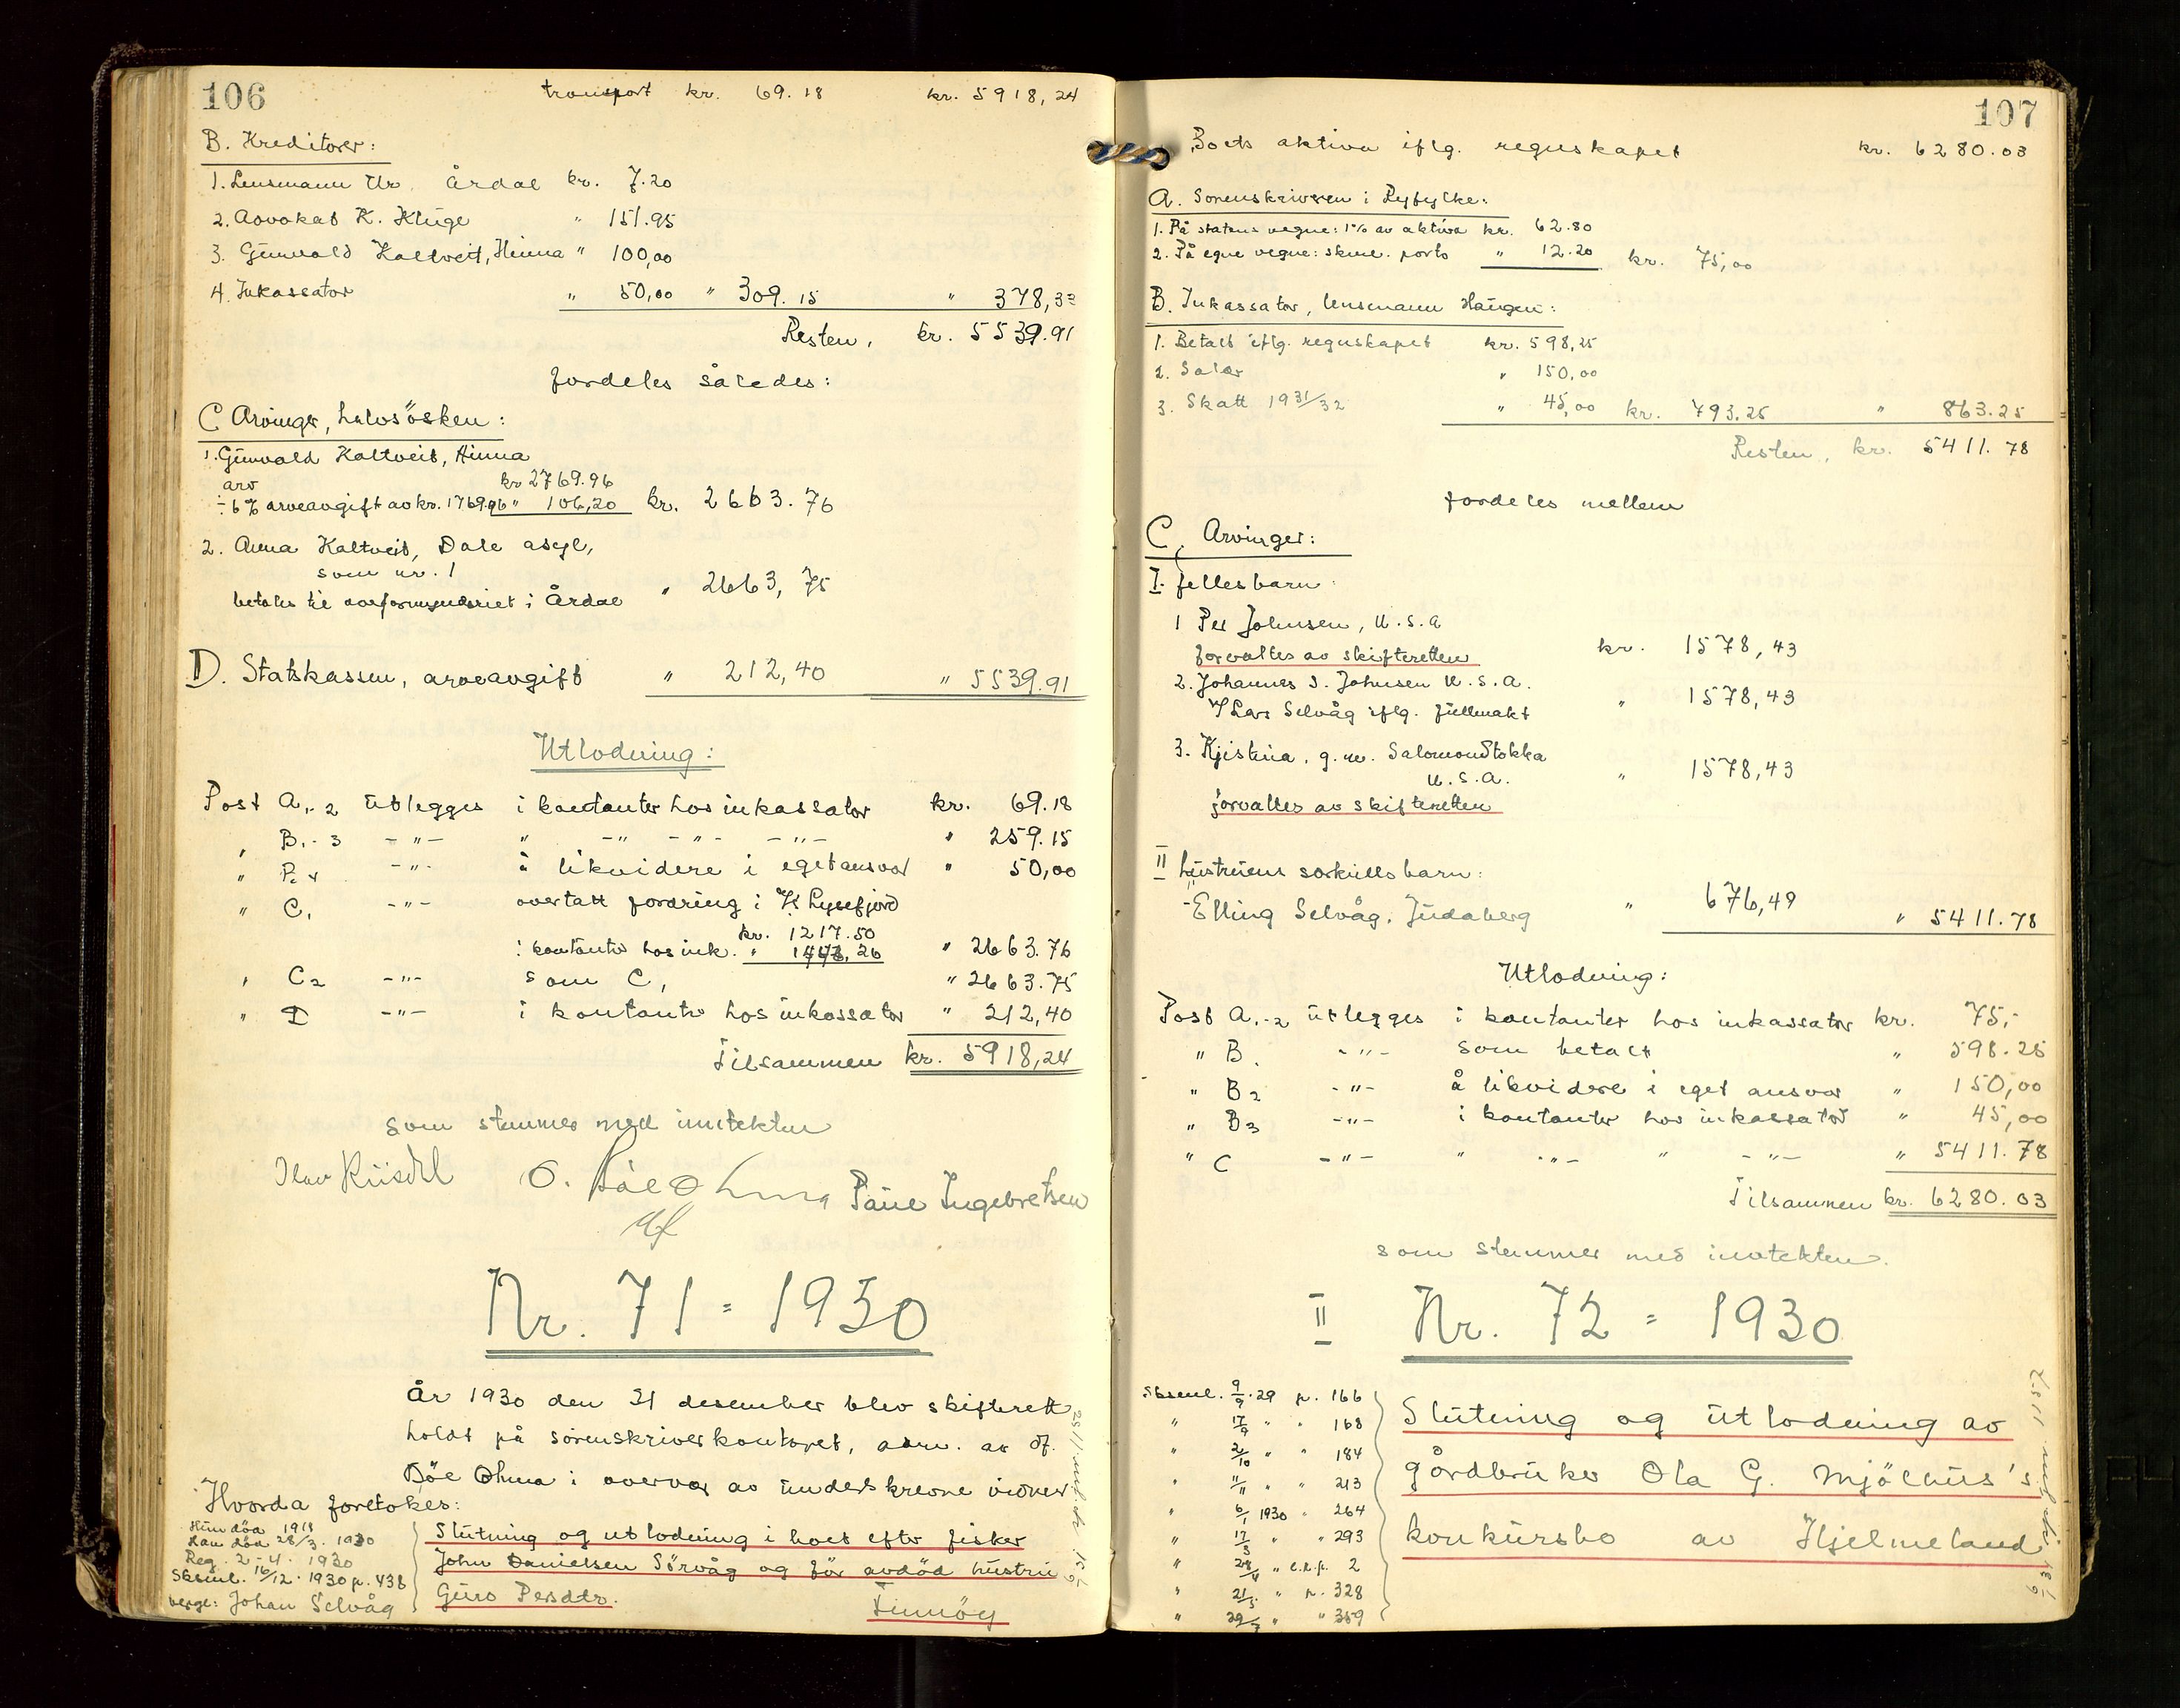 106
transport kr. 69.18 kr. 5918,24
B. Kreditorer:
1. Lensmann Ur. Årdal kr. 7.20
2. Advokat K. Kluge " 151.95
3. Gunvald Kaltveit, Hinna " 100,00
4. Inkassator " 50,00 " 309.15 " 378,33
Resten, kr. 5539.91
fordeles således:
C Arvinger, halvsösken:
1. Gunvald Kaltveit, Hinna
arv kr 2769.96
÷ 6% arveavgift av kr. 1769.96 " 106,20 kr. 2663.76
2. Anna Kaltveit, Dale asyl,
som nr. 1
betales til overformynderiet i Årdal " 2663,75
D. Statskassen, arveavgift " 212,40 " 5539.91
Utlodning:
Post A1-2 utlegges i kontanter hos inkassator kr. 69.18
" B1-3 -"- " -"- -"- -"- " 259.15
" B4 -"- å likvidere i eget ansvar " 50,00
" C1 -"- overtatt fordring i K Lysefjord
kr. 1217.50
i kontanter hos ink. " 1446,26 " 2663.76
" C2 -"- som C1 " 2663.75
" D -"- i kontanter hos inkassator " 212,40
Tilsammen kr. 5918,24
som stemmer med inntekten
O. Böe Ohma Paul Ingebretsen
Nr. 71 = 1930
År 1930 den 31 desember blev skifterett
holdt på sorenskriverkontoret, adm. av df.
Böe Ohma i overvær av underskrevne vidner
Hvorda foretokes:
Hun död 1918
Han död 28/3. 1930
Reg. 2-4. 1930
Sksml. 16/12. 1930 p. 438
verge: Johan Selvåg
Slutning og utlodning i boet efter fisker
John Danielsen Sörvåg og för avdöd hustru
Guro Persdtr. Finnöy
107
Boets aktiva iflg. regnskapet kr. 6280.03
A. Sorenskriveren i Ryfylke:
1. På statens vegne: 1% av aktiva kr. 62.80
2. På egne vegne: skml. porto " 12.20 kr. 75,00
B. Inkassator, lensmann Haugen:
1. Betalt iflg. regnskapet kr. 598,25
2. Salær " 150,00
3. Skatt 1931/32 " 45,00 kr. 793.25 " 863.25
Resten, kr. 5411.78
fordeles mellem
C, Arvinger:
I. fellesbarn:
1 Per Johnsen, U.S.A
forvaltes av skifteretten kr. 1578,43
2. Johannes S. Johnsen U.S.A.
v/ Lars Selvåg iflg. fullmakt " 1578,43
3. Kjistina, g.m. Salomon Stokka
U.S.A. " 1578,43
forvaltes av skifteretten
II hustruens særkullsbarn:
Elling Selvåg, Judaberg " 676,49 " 5411.78
Utlodning:
Post A1-2 utlegges i kontanter hos inkassator kr. 75,-
" B1 -"- som betalt " 598.25
" B2 -"- å likvidere i eget ansvar " 150,00
" B3 -"- i kontanter hos inkassator " 45,00
" C -"- " -"- " -"- " 5411.78
Tilsammen kr. 6280.03
som stemmer med inntekten.
II Nr. 72 = 1930
Sksml. 9/9.29 p. 166
" 17/9 " " 168
" 2/10 " " 184
" 11/11 " " 213
" 6/1 1930 " 264
" 17/3 " " 293
" 28/4 " e.r.p. 2
" 21/5 " p. 328
" 29/7 " " 359
Slutning og utlodning av
gårdbruker Ola G. Mjölhus's
konkursbo av Hjelmeland